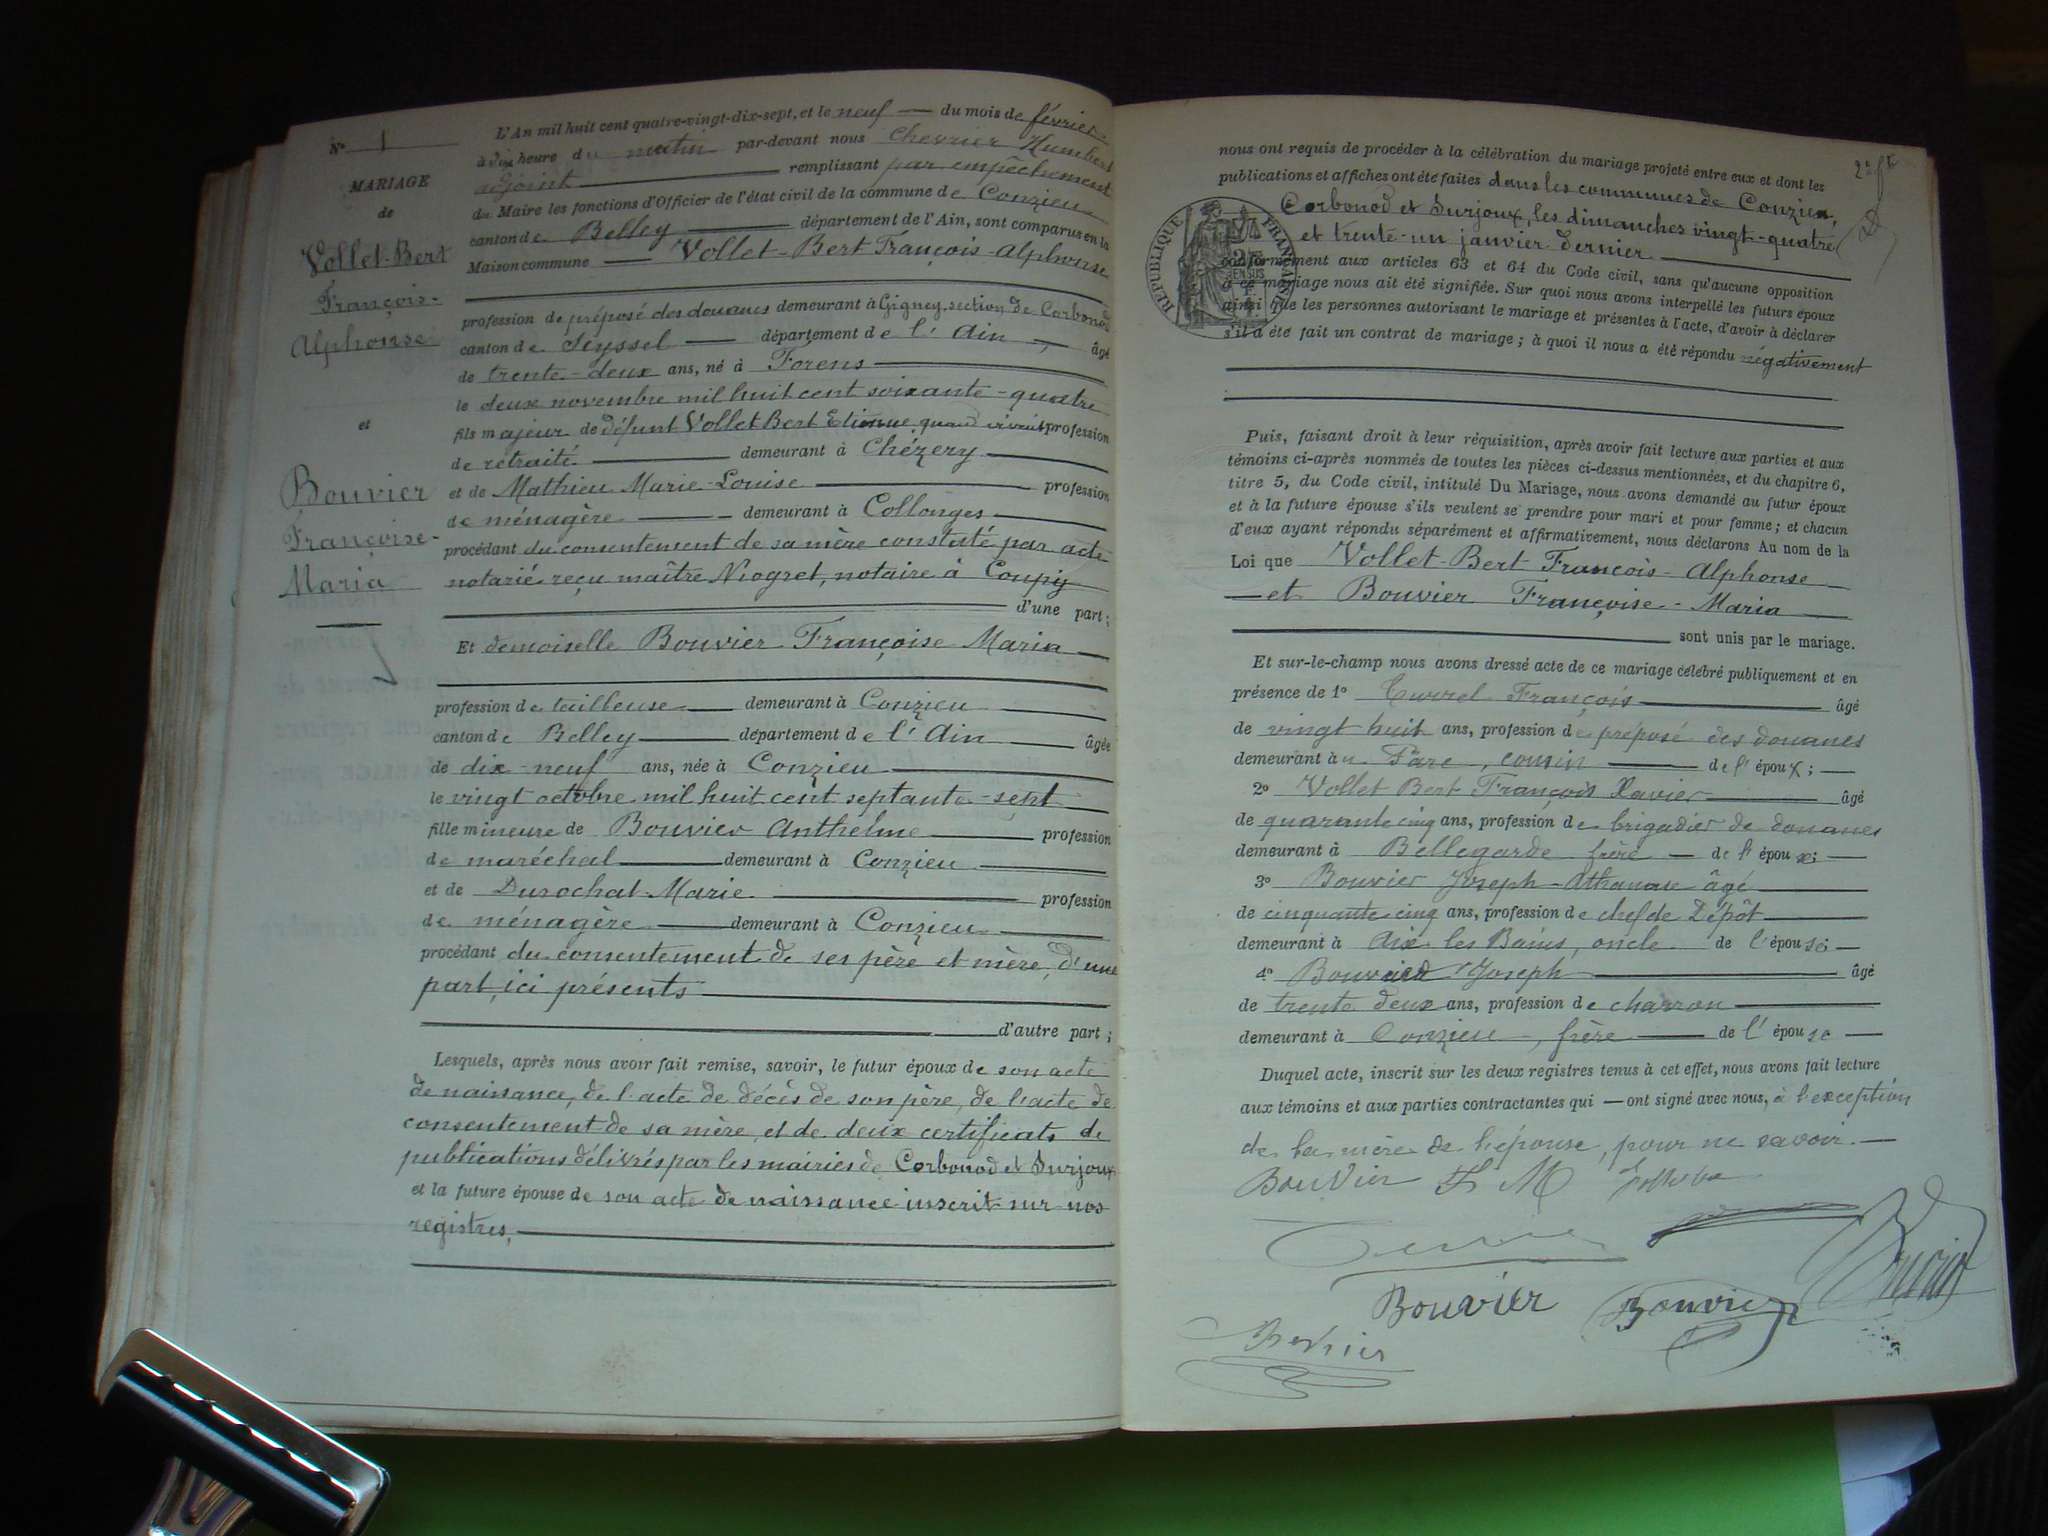 N° 1
MARIAGE
de
Vollet-Bert
François-
Alphonse
et
Bouvier
Françoise-
Maria
L'An mil huit cent quatre-vingt-dix-sept, et le neuf du mois de février
à dix heure du matin par-devant nous Chevrier Humbert
adjoint remplissant par empêchement
du Maire les fonctions d'Officier de l'état civil de la commune de Conzieu
canton de Belley département de l'Ain, sont comparus en la
Maison commune Vollet-Bert François-Alphonse
profession de préposé des douanes demeurant à Gigney section de Corbonod
canton de Seyssel département de l'Ain, âgé
de trente-deux ans, né à Forens
le deux novembre mil huit cent soixante-quatre
fils majeur de défunt Vollet Bert Etienne quand vivait profession
de retraité demeurant à Chézery
et de Mathieu Marie-Louise profession
de ménagère demeurant à Collonges
procédant du consentement de sa mère constaté par acte
notarié reçu maître Niogret, notaire à Coupy
d'une part;
Et demoiselle Bouvier Françoise Maria
profession de tailleuse demeurant à Conzieu
canton de Belley département de l'Ain âgée
de dix-neuf ans, née à Conzieu
le vingt octobre mil huit cent septante-sept
fille mineure de Bouvier Anthelme profession
de maréchal demeurant à Conzieu
et de Durochat Marie profession
de ménagère demeurant à Conzieu
procédant du consentement de ses père et mère, d'une
part, ici présents
d'autre part;
Lesquels, après nous avoir fait remise, savoir, le futur époux de son acte
de naissance, de l'acte de décès de son père, de l'acte de
consentement de sa mère, et de deux certificats de
publications délivrés par les mairies de Corbonod et Surjoux
et la future épouse de son acte de naissance inscrit sur nos
registres,
2e ft
nous ont requis de procéder à la célébration du mariage projeté entre eux et dont les
publications et affiches ont été faites dans les communes de Conzieu,
Corbonod et Surjoux, les dimanches vingt-quatre
et trente-un janvier dernier
RÉPUBLIQUE FRANÇAISE
conformément aux articles 63 et 64 du Code civil, sans qu'aucune opposition
à ce mariage nous ait été signifiée. Sur quoi nous avons interpellé les futurs époux
ainsi que les personnes autorisant le mariage et présentes à l'acte, d'avoir à déclarer
s'il a été fait un contrat de mariage; à quoi il nous a été répondu négativement
Puis, faisant droit à leur réquisition, après avoir fait lecture aux parties et aux
témoins ci-après nommés de toutes les pièces ci-dessus mentionnées, et du chapitre 6,
titre 5, du Code civil, intitulé Du Mariage, nous avons demandé au futur époux
et à la future épouse s'ils veulent se prendre pour mari et pour femme; et chacun
d'eux ayant répondu séparément et affirmativement, nous déclarons Au nom de la
Loi que Vollet-Bert François-Alphonse
et Bouvier Françoise-Maria
sont unis par le mariage.
Et sur-le-champ nous avons dressé acte de ce mariage célébré publiquement et en
présence de 1° François âgé
de vingt huit ans, profession de préposé des douanes
demeurant à cousin de l'époux;
2° Vollet Bert François Xavier âgé
de quarante cinq ans, profession de brigadier de douanes
demeurant à Bellegarde frère de l'époux;
3° Bouvier Joseph-Athanase âgé
de cinquante cinq ans, profession de chef de Dépôt
demeurant à Aix les Bains, oncle de l'épouse
4° Bouvier Joseph âgé
de trente deux ans, profession de charron
demeurant à Conzieu, frère de l'épouse
Duquel acte, inscrit sur les deux registres tenus à cet effet, nous avons fait lecture
aux témoins et aux parties contractantes qui ont signé avec nous, à l'exception
de la mère de l'épouse, pour ne savoir.
Bouvier F M
Bouvier Bouvier